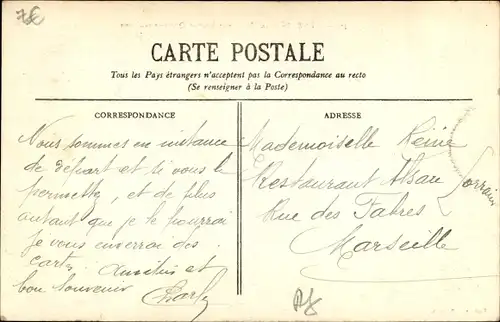 7€
CARTE POSTALE
Tous les Pays étrangers n'acceptent pas la Correspondance au recto
(Se renseigner à la Poste)
CORRESPONDANCE
Nous sommes en instance
de départ et si vous le
permettez, et de plus
autant que je le pourrai
Je vous enverrai des
cartes. Amitiés et
bon souvenir Charly
ADRESSE
Mademoiselle Reine
Restaurant Alsace Lorraine
Rue des Fabres
Marseille